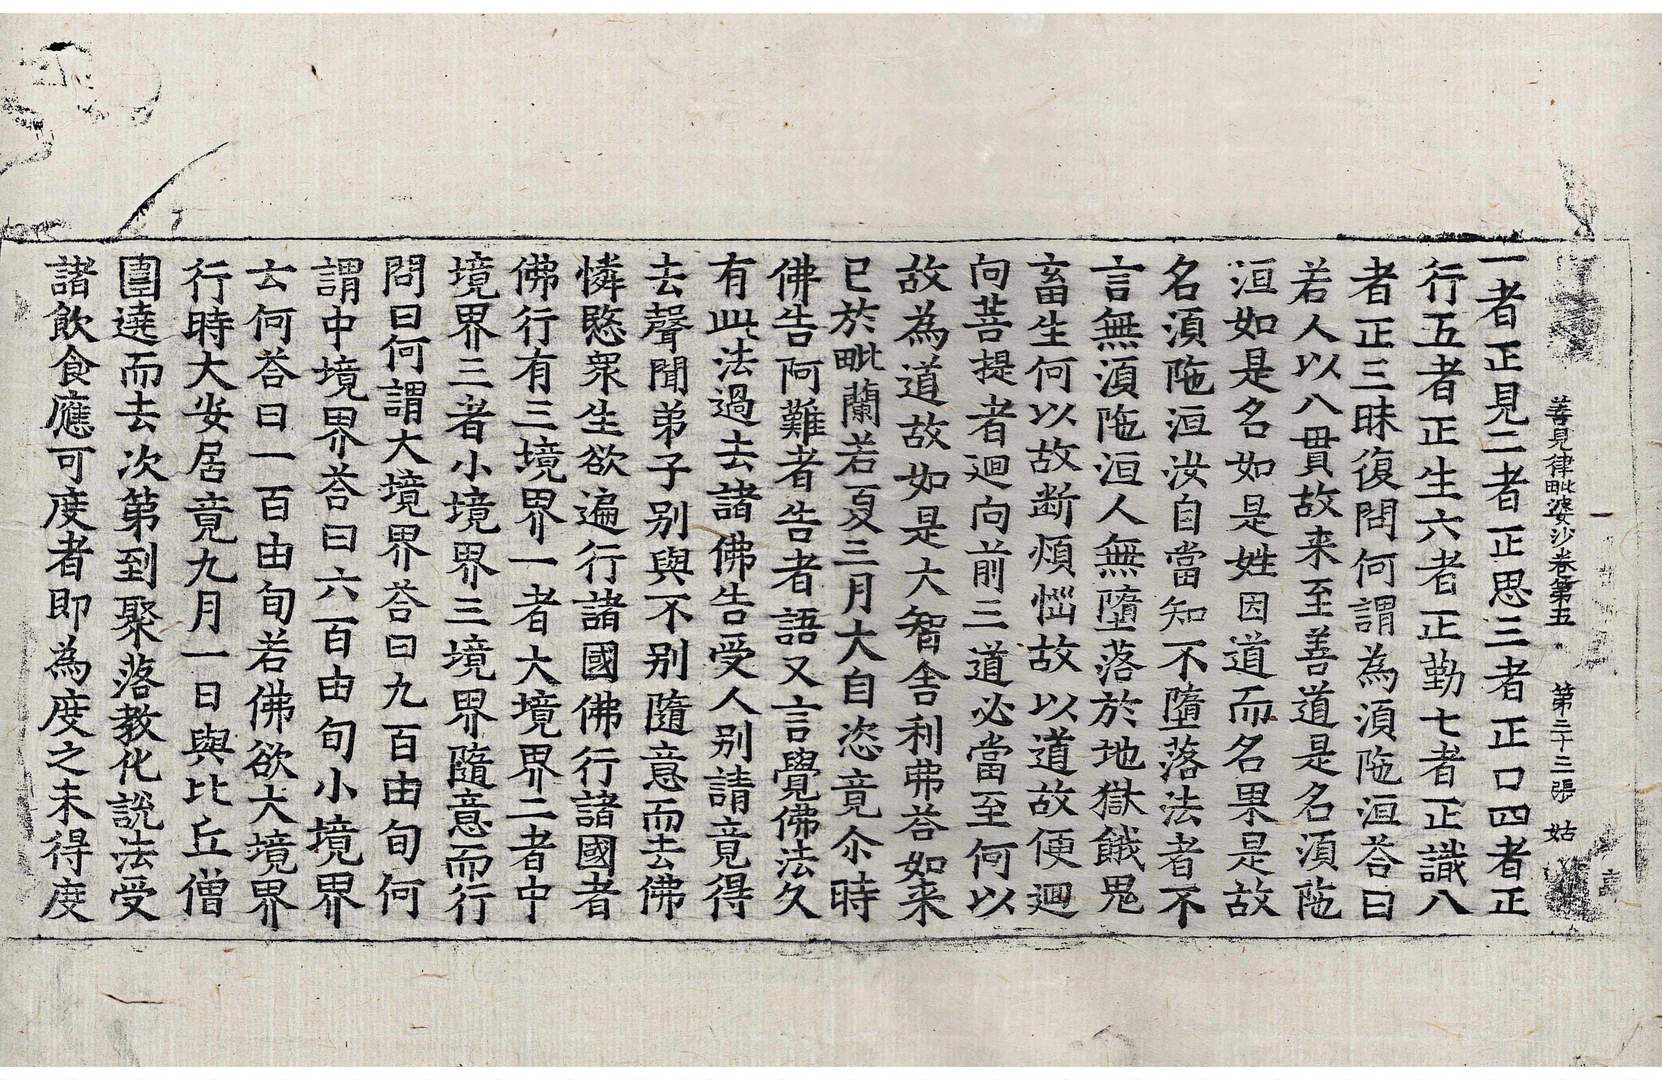 善見律毗婆沙卷第五　第二十三張　姑
一者正見二者正思三者正口四者正
行五者正生六者正勤七者正識八
者正三昧復問何謂為湏陁洹荅曰
若人以八貫故来至善道是名湏陁
洹如是名如是姓因道而名果是故
名湏陁洹汝自當知不墮落法者不
言無湏陁洹人無墮落於地獄餓鬼
畜生何以故断煩惱故以道故便迴
向菩提者迴向前三道必當至何以
故為道故如是大智舎利弗荅如来
已於毗蘭若夏三月大自恣竟尒時
佛告阿難者告者語又言覺佛法久
有此法過去諸佛告受人别請竟得
去聲聞弟子别與不别隨意而去佛
憐愍衆生欲遍行諸國佛行諸國者
佛行有三境界一者大境界二者中
境界三者小境界三境界隨意而行
問曰何謂大境界荅曰九百由旬何
謂中境界荅曰六百由旬小境界
云何荅曰一百由旬若佛欲大境界
行時大安居竟九月一日與比丘僧
圍遶而去次第到聚落教化說法受
諸飲食應可度者即為度之未得度